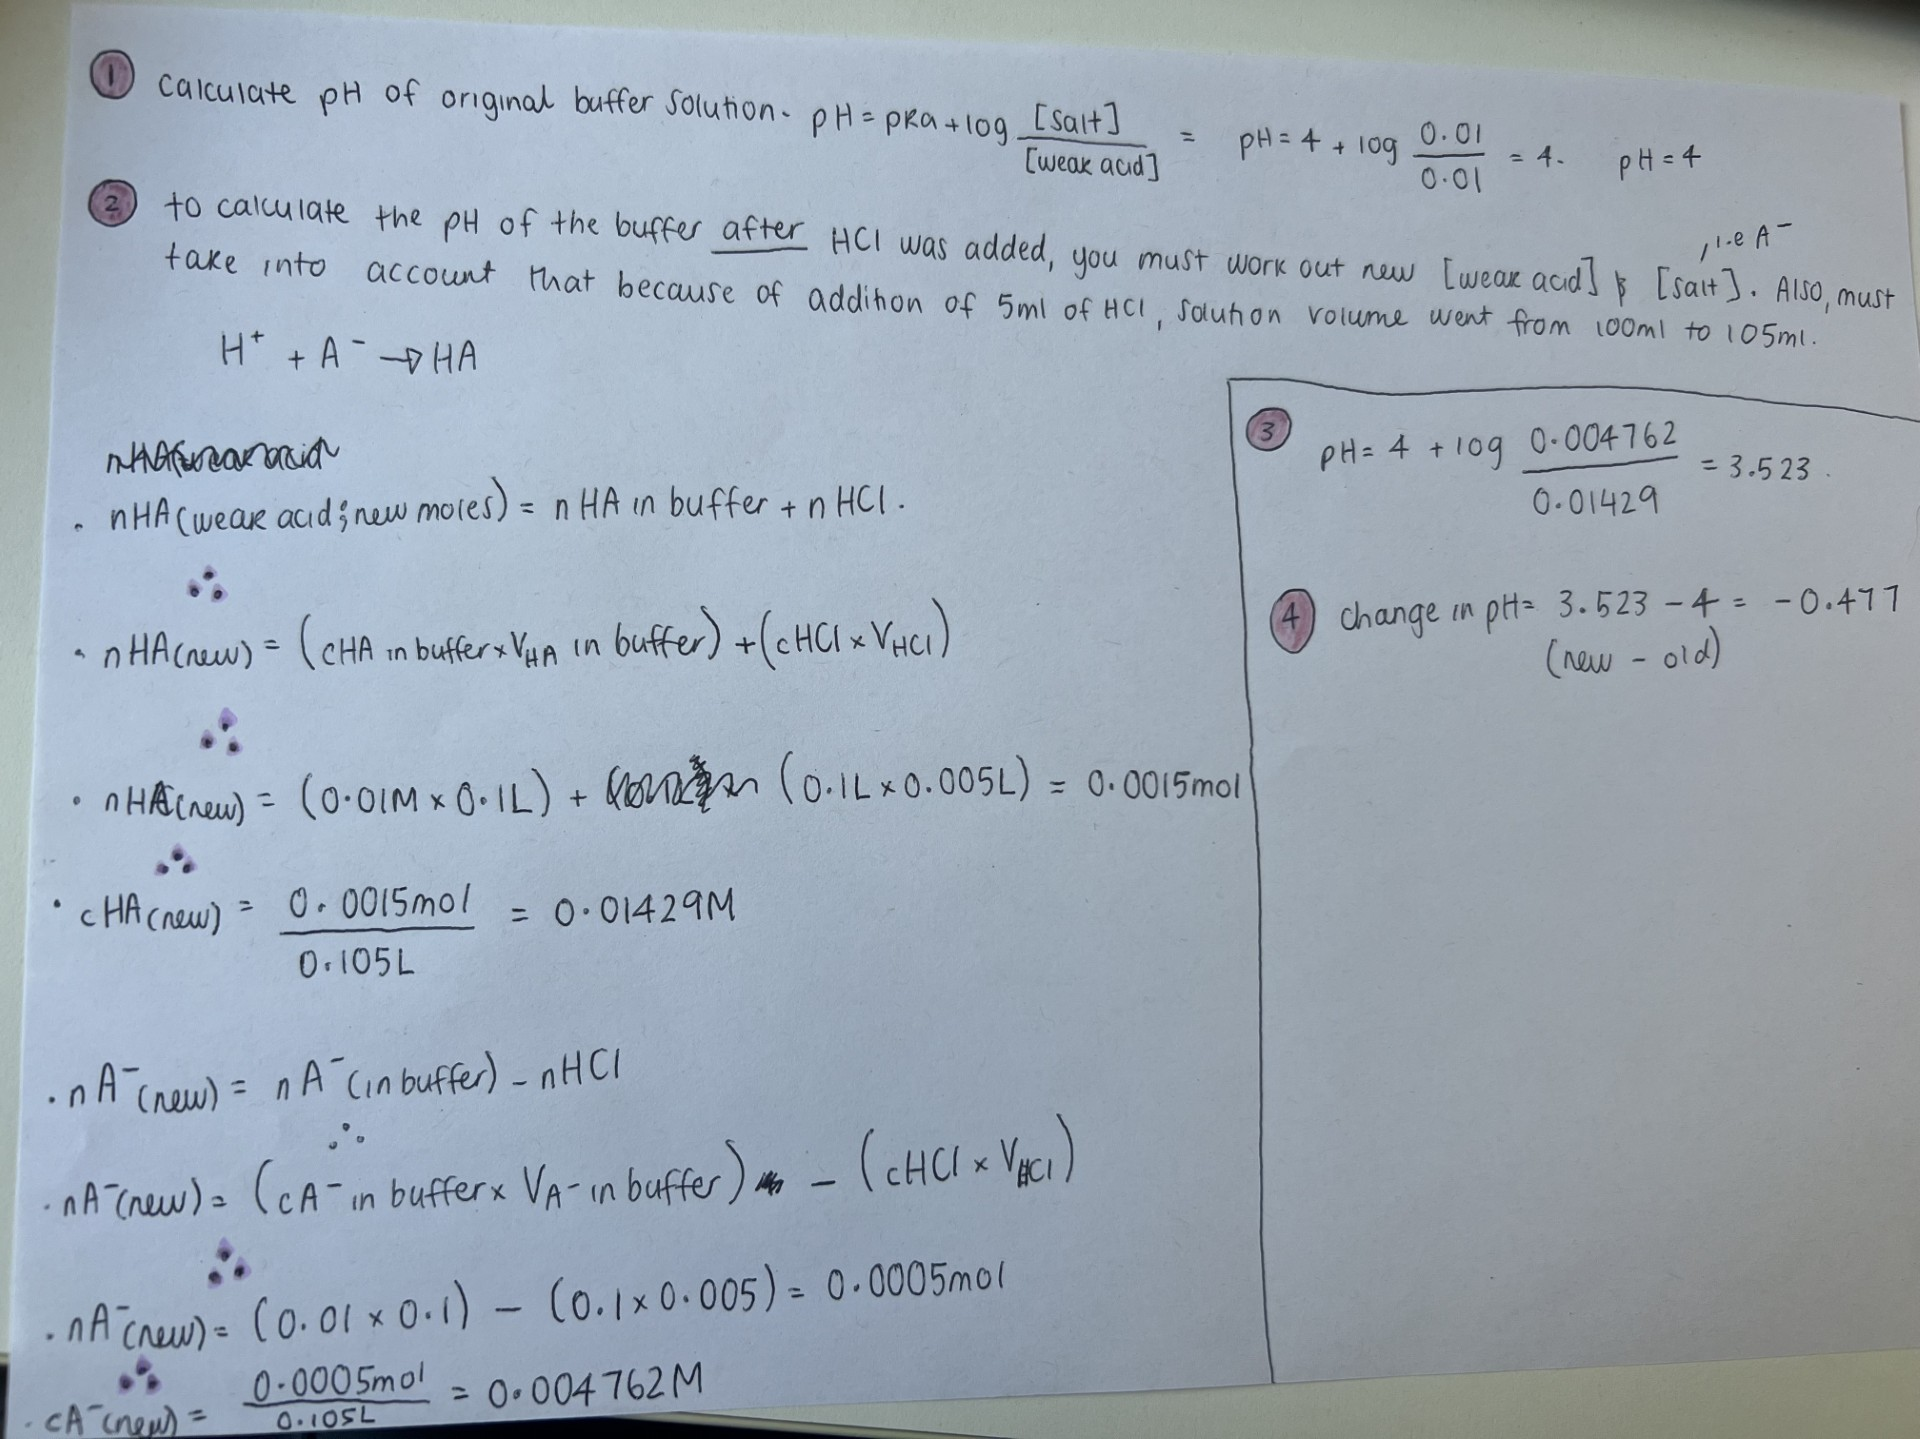 ① Calculate pH of original buffer solution. pH = pKa + log [salt]/[weak acid] = pH = 4 + log 0.01/0.01 = 4. pH = 4
② to calculate the pH of the buffer after HCl was added, you must work out new [weak acid] & [salt]. Also, must
, i.e A⁻
take into account that because of addition of 5ml of HCl, solution volume went from 100ml to 105ml.
H⁺ + A⁻ → HA
. nHA (weak acid; new moles) = nHA in buffer + nHCl.
∴
. nHA(new) = (cHA in buffer × VHA in buffer) + (cHCl × VHCl)
∴
. nHA(new) = (0.01M × 0.1L) + (0.1L × 0.005L) = 0.0015mol
∴
. cHA(new) = 0.0015mol/0.105L = 0.01429M
. nA⁻(new) = nA⁻(in buffer) - nHCl
∴
. nA⁻(new) = (cA⁻ in buffer × VA⁻ in buffer) - (cHCl × VHCl)
∴
. nA⁻(new) = (0.01 × 0.1) - (0.1 × 0.005) = 0.0005mol
∴
. cA⁻(new) = 0.0005mol/0.105L = 0.004762M
③ pH = 4 + log 0.004762/0.01429 = 3.523.
④ change in pH = 3.523 - 4 = -0.477
(new - old)